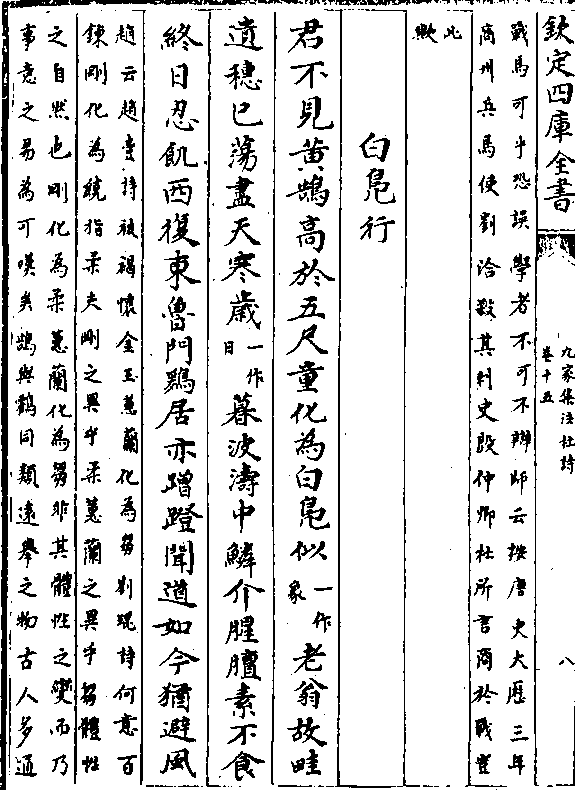 欽定四庫全書
九家集注杜詩
卷十五
八
戰馬可乎恐誤學者不可不辨師云按唐史大歷三年
商州兵馬使劉洽殺其刺史殷仲卿杜所言商於戰豈
此
歟
白鳬行
君不見黄鵠高於五尺童化為白鳬似一作象老翁故畦
遺穗已蕩盡天寒歲一作日暮波濤中鱗介腥膻素不食
終日忍飢西復東魯門鶢居亦蹭蹬聞道如今猶避風
趙云趙壹詩被褐懷金玉蕙蘭化為芻劉琨詩何意百
鍊剛化為繞指柔夫剛之異乎柔蕙蘭之異乎芻體性
之自然也剛化為柔蕙蘭化為芻非其體性之變而乃
事意之易為可嘆矣鵠與鶴同類遠舉之物古人多通